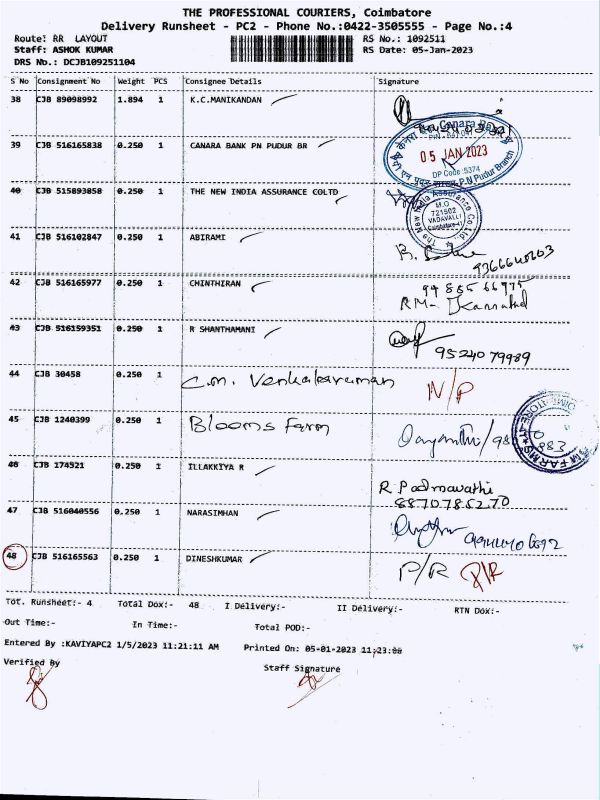 THE PROFESSIONAL COURIERS, Coimbatore
Delivery Runsheet - PC2 - Phone No.:0422-3505555 - Page No.:4
Route: RR LAYOUT RS No.: 1092511
Staff: ASHOK KUMAR RS Date: 05-Jan-2023
DRS No.: DCJB109251104
S No Consignment No Weight PCS Consignee Details Signature
38 CJB 89098992 1.894 1 K.C.MANIKANDAN
39 CJB 516165838 0.250 1 CANARA BANK PN PUDUR BR
Canara
05 JAN 2023
DP Code :5374
P.N Pudur Branch
40 CJB 515893858 0.250 1 THE NEW INDIA ASSURANCE COLTD
The New India Assurance Co.Ltd.
M.O
721502
VADAVALLI
Coimbatore-41
41 CJB 516102847 0.250 1 ABIRAMI
42 CJB 516165977 0.250 1 CHINTHIRAN
RM-
43 CJB 516159351 0.250 1 R SHANTHAMANI
9524079989
44 CJB 30458 0.250 1 C.M. Venkataraman N/P
45 CJB 1240399 0.250 1 Blooms Farm
46 CJB 174521 0.250 1 ILLAKKIYA R
R Padmavathi
8870785270
47 CJB 516040556 0.250 1 NARASIMHAN
48 CJB 516165563 0.250 1 DINESHKUMAR P/R P/R
Tot. Runsheet:- 4 Total Dox:- 48 I Delivery:- II Delivery:- RTN Dox:-
Out Time:- In Time:- Total POD:-
Entered By :KAVIYAPC2 1/5/2023 11:21:11 AM Printed On: 05-01-2023 11:23:08
Verified By Staff Signature